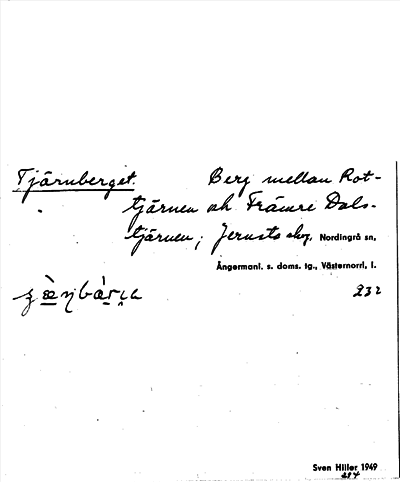 Tjärnberget. Berg mellan Rot-
tjärnen och Främre Dals-
tjärnen; Jernsta skog, Nordingrå sn,
Ångermanl. s. doms. tg., Västernorrl. l.
232
Sven Hiller 1949